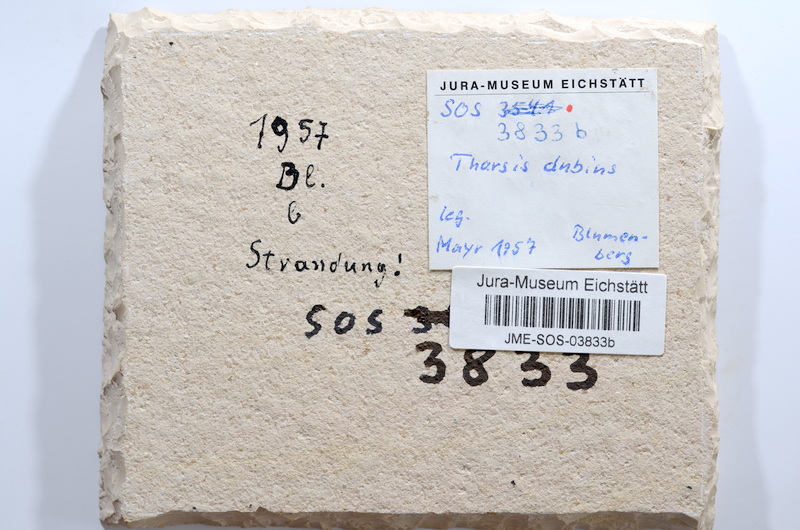 1957
Bl.
b
Strandung!
SOS
3833
JURA-MUSEUM EICHSTÄTT
SOS 3541
3833 b
Tharsis dubius
leg.
Mayr 1957 Blumen-
berg
Jura-Museum Eichstätt
JME-SOS-03833b